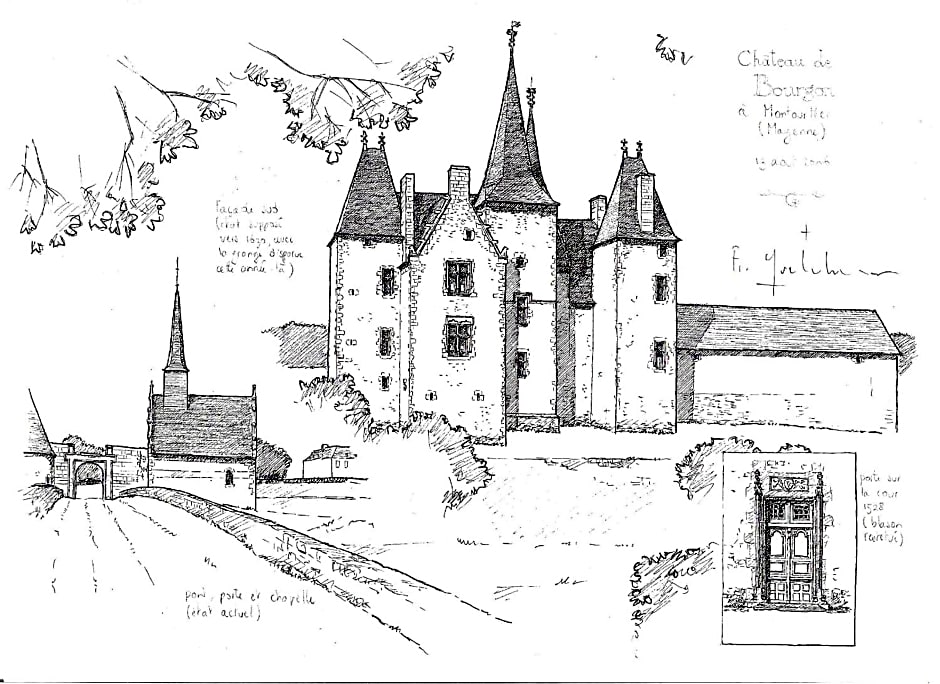 Château de
Bourgon
à Montourtier
(Mayenne)
13 août 2006
G
Façade sud
(état supposé
vers 1630, avec
la grange disparue
cette année-là)
pont, porte et chapelle
(état actuel)
porte sur
la cour
1528
(blason